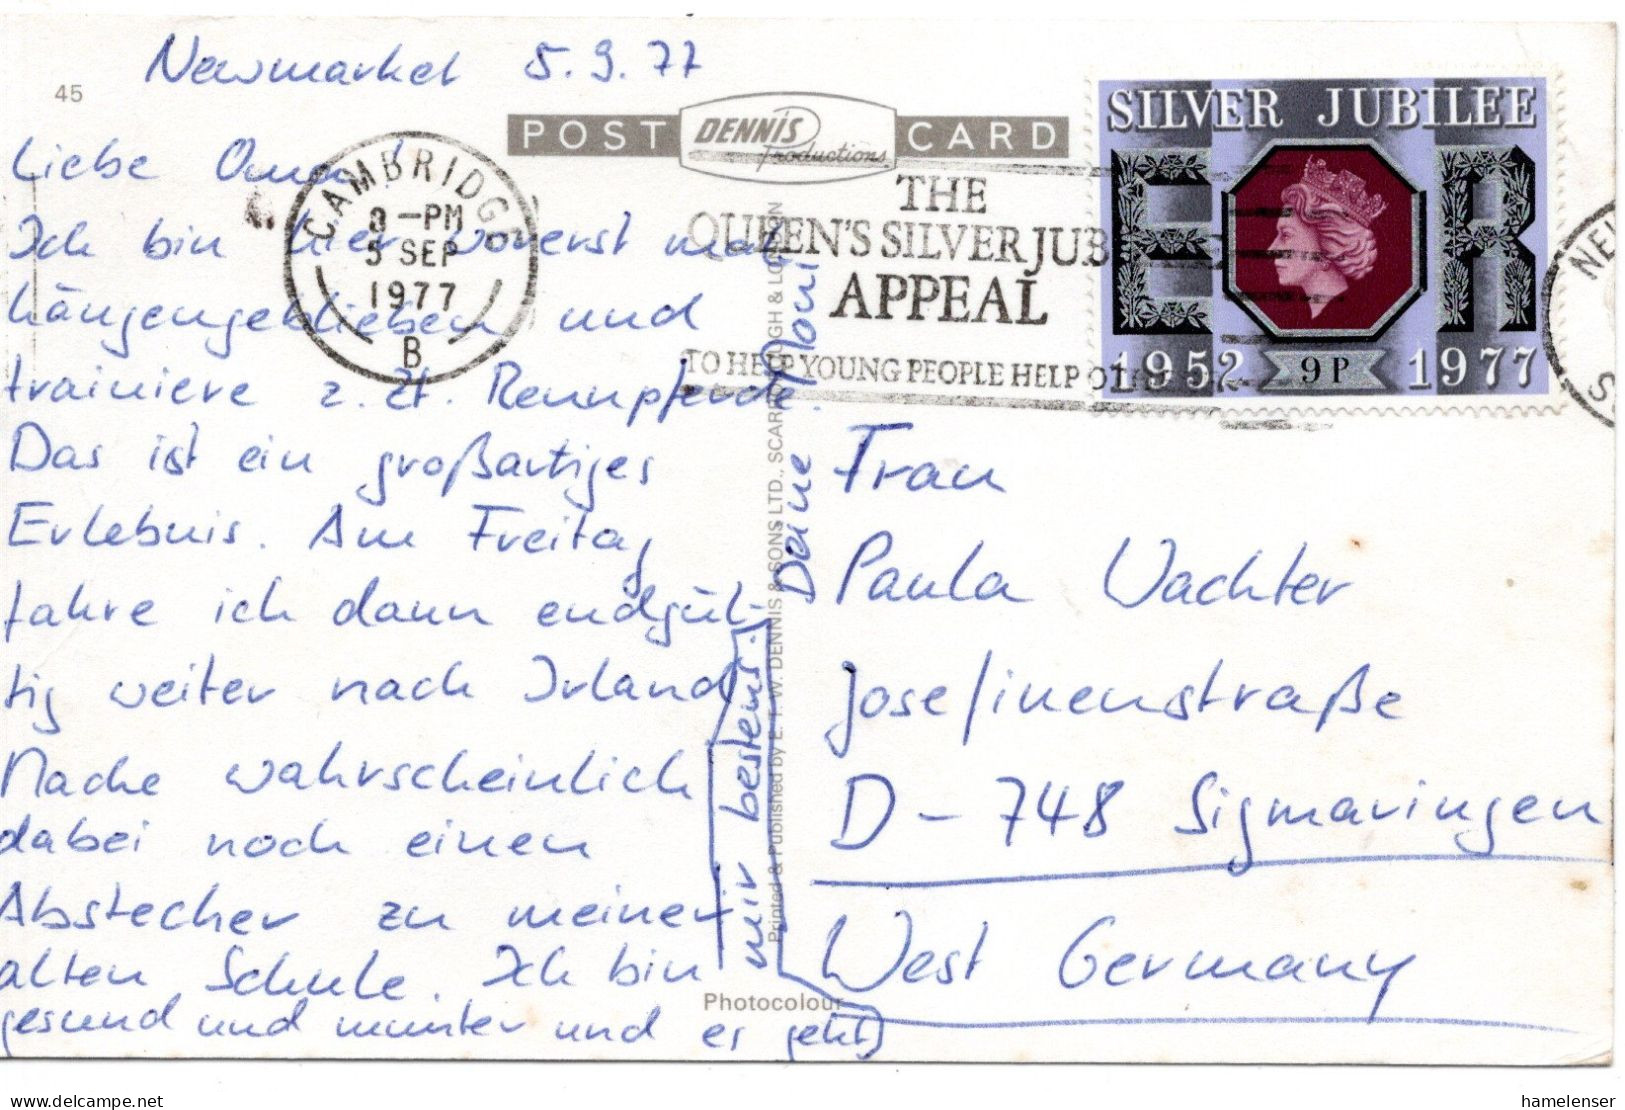 Newmarket 5.9.77
45
Liebe Oma!
Ich bin hier vorerst mal
hängengeblieben und
trainiere z. Zt. Rennpferde.
Das ist ein großartiges
Erlebnis. Am Freitag
fahre ich dann endgül-
tig weiter nach Irland
Mache wahrscheinlich
dabei noch einen
Abstecher zu meiner
alten Schule. Ich bin
gesund und munter und es geht
mir bestens.
Deine Moni
POST DENNIS Productions CARD
CAMBRIDGE
8-PM
5 SEP
1977
B
THE
QUEEN'S SILVER JUB
APPEAL
TO HELP YOUNG PEOPLE HELP
SILVER JUBILEE
E R
1952 9P 1977
Printed & Published by E. T. W. DENNIS & SONS LTD., SCARBOROUGH & LONDON
Photocolour
Frau
Paula Wachter
Josefinenstraße
D-748 Sigmaringen
West Germany
delcampe.net
hamelenser